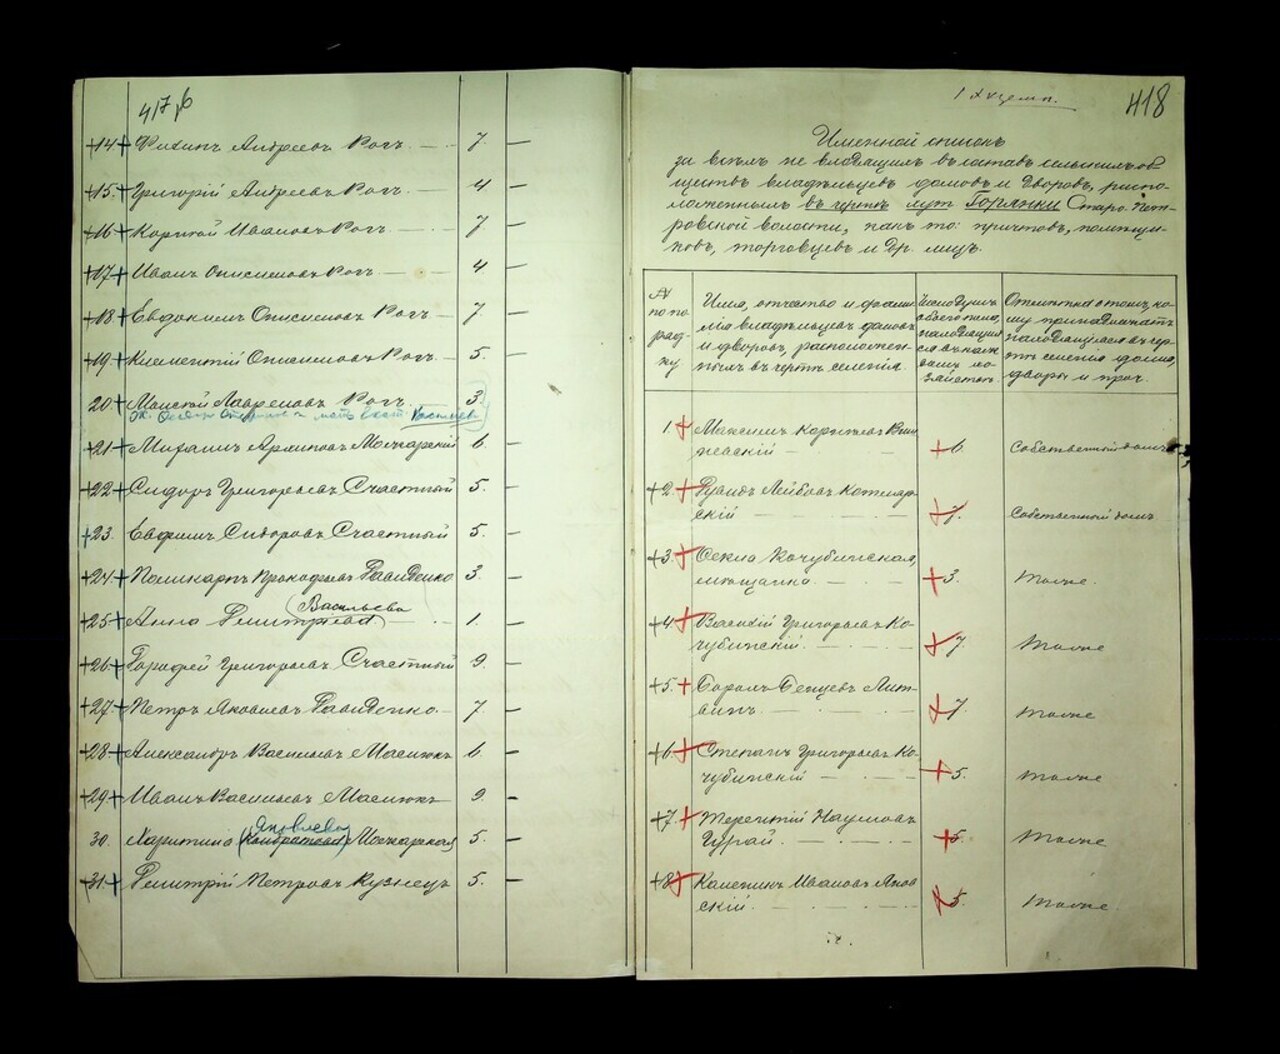 417 об
14. Филипъ Андреевъ Рогъ. 7. —
15. Григорій Андреевъ Рогъ. 4 —
16 Корнѣй Ивановъ Рогъ. 7 —
17 Иванъ Онисимовъ Рогъ 4 —
18 Евдокимъ Онисимовъ Рогъ 7. —
19. Климентій Онисимовъ Рогъ. 5. —
20. Моисей Лавреновъ Рогъ. 3.
21. Архиповъ Мочкарскій 6. —
22. Сидоръ Григорьевъ Счастный 5. —
23. Евфимъ Сидоровъ Счастный 5. —
24. Поликарпъ Прокофьевъ Давиденко 3. —
Васильева
25. Анна Димитріева 1. —
26. Григорьевъ Счастный 9. —
27. Петръ Яковлевъ Давиденко. 7 —
28. Александръ Васильевъ Масюкъ 6 —
29. Иванъ Васильевъ Масюкъ 9. —
Яковлева
30. Харитина Кондратова Мочкарская 5. —
31. Димитрій Петровъ Кузнецъ 5. —
418
Именной списокъ
за всѣмъ не входящимъ въ составъ сельскихъ об
ществъ владѣльцевъ домовъ и дворовъ, распо-
ложеннымъ въ чертѣ хут Горянки Старо-Пет-
ровской волости, какъ то: причтовъ, помѣщи-
ковъ, торговцевъ и др. лицъ.
№ по по рядку
Имя, отчество и фами лія владѣльцевъ домовъ и дворовъ, расположен- нымъ въ чертѣ селенія.
Число душъ обоего пола, находящих ся въ каж домъ хо зяйствѣ.
Отмѣтка о томъ, ко- му принадлежатъ находящіеся въ чер- тѣ селенія дома, дворы и проч.
1. Максимъ Корнѣевъ Виш
невскій 6. Собственный домъ
2. Лейбовъ Котляр
скій 7. Собственный домъ
3. Текла Кочубинская,
мѣщанка. 3. Тоже.
4. Василій Григорьевъ Ко-
чубинскій. 7. Тоже
5. Лит-
винъ. 7. Тоже
6. Степанъ Григорьевъ Ко-
чубинскій 5. Тоже
7. Терентій Наумовъ
Гурай. 5. Тоже
8. Каленикъ Ивановъ Янов
скій. 5. Тоже.